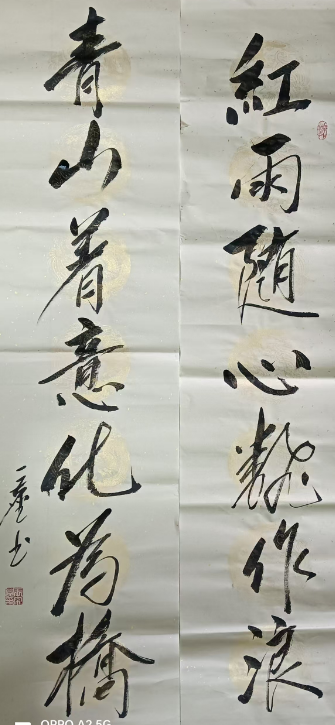 紅雨随心翻作浪
青山着意化為橋
OPPO A2 5G